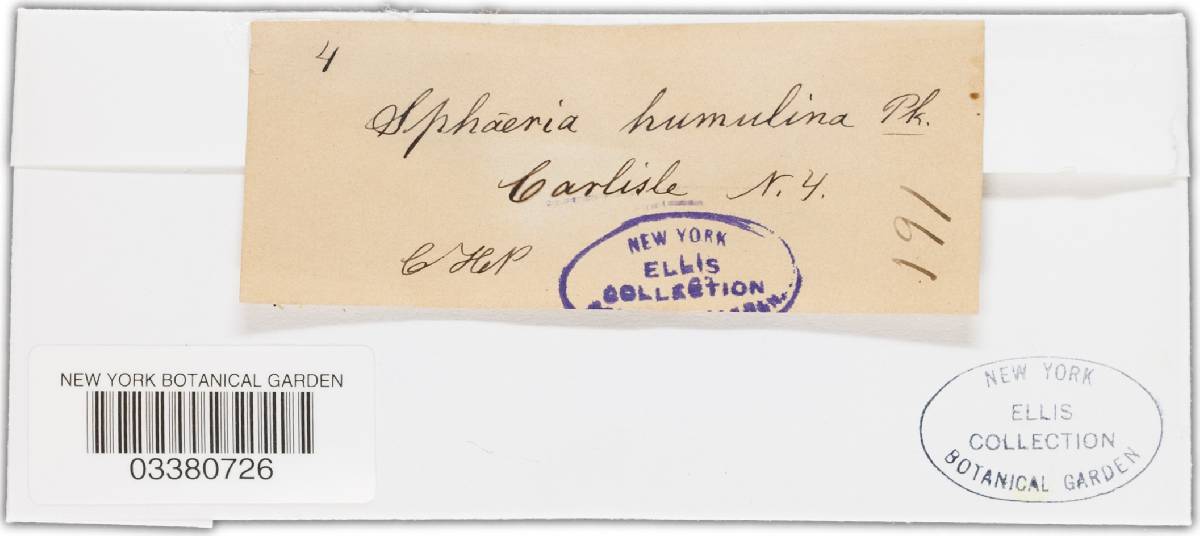 4
Sphaeria humulina Pk.
Carlisle N.Y.
C H P
191
NEW YORK
ELLIS
COLLECTION
NEW YORK BOTANICAL GARDEN
03380726
NEW YORK
ELLIS
COLLECTION
BOTANICAL GARDEN